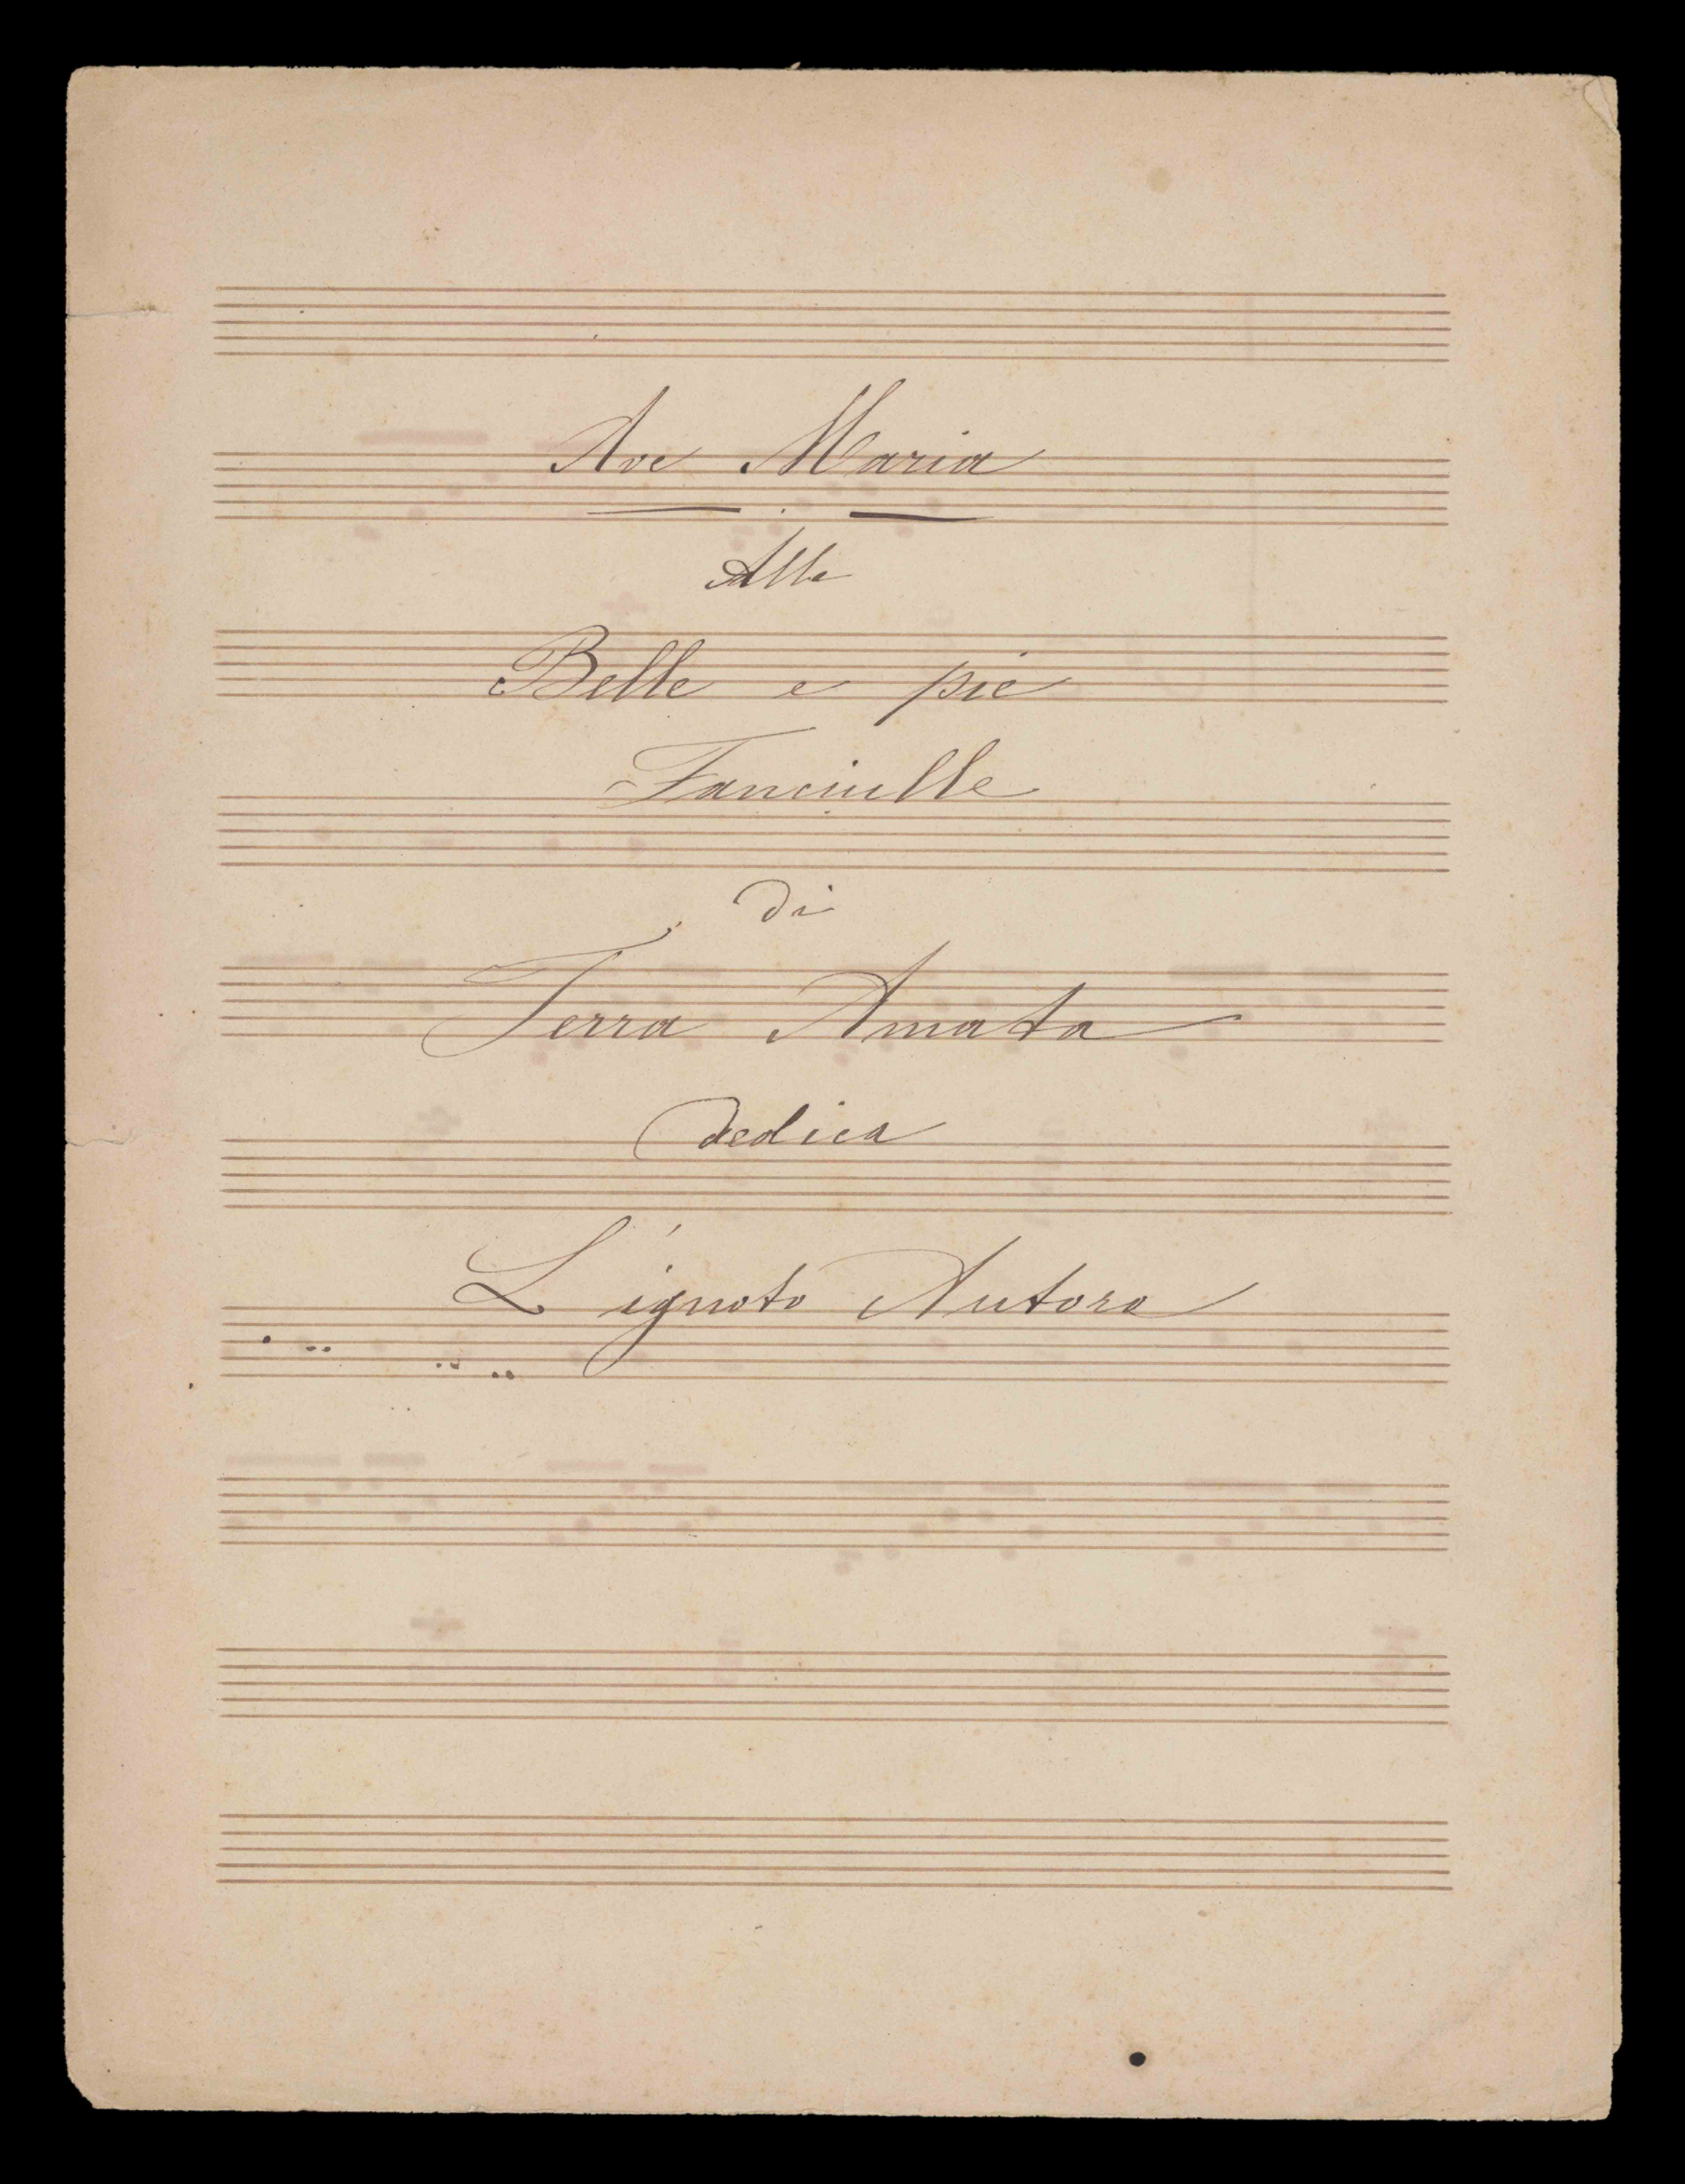 Ave Maria
Alle
Belle e pie
Fanciulle
di
Terra Amata
dedica
L'ignoto Autore